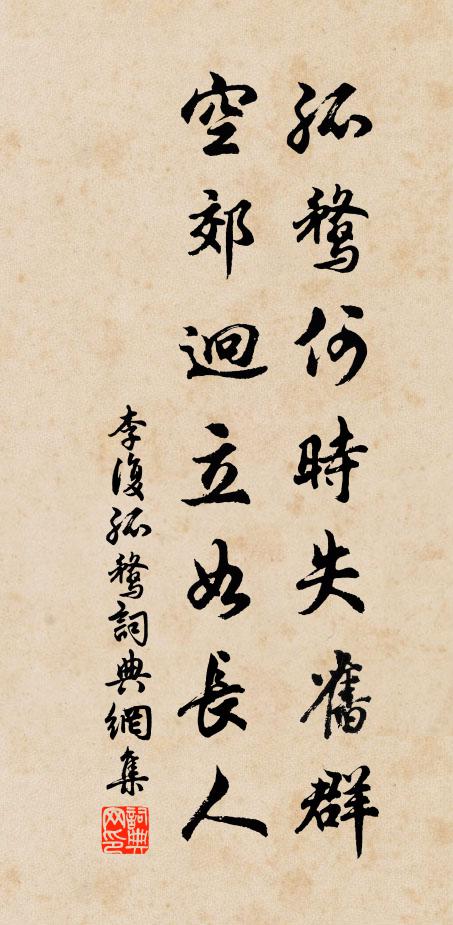 孤鶖何時失舊群
空郊迴立如長人
李復孤鶖詞典網集
詞典
网印